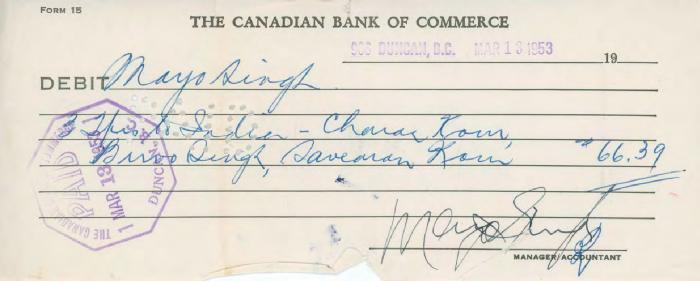 FORM 15
THE CANADIAN BANK OF COMMERCE
906 DUNCAN, B.C. MAR 13 1953 19
DEBIT Mayo Singh
3 to India - Kour,
Singh, Kour " 66.39
THE CANADIAN
PAID
1 MAR 13 1953 1
DUNCAN, B.C.
Mayo Singh
MANAGER/ACCOUNTANT